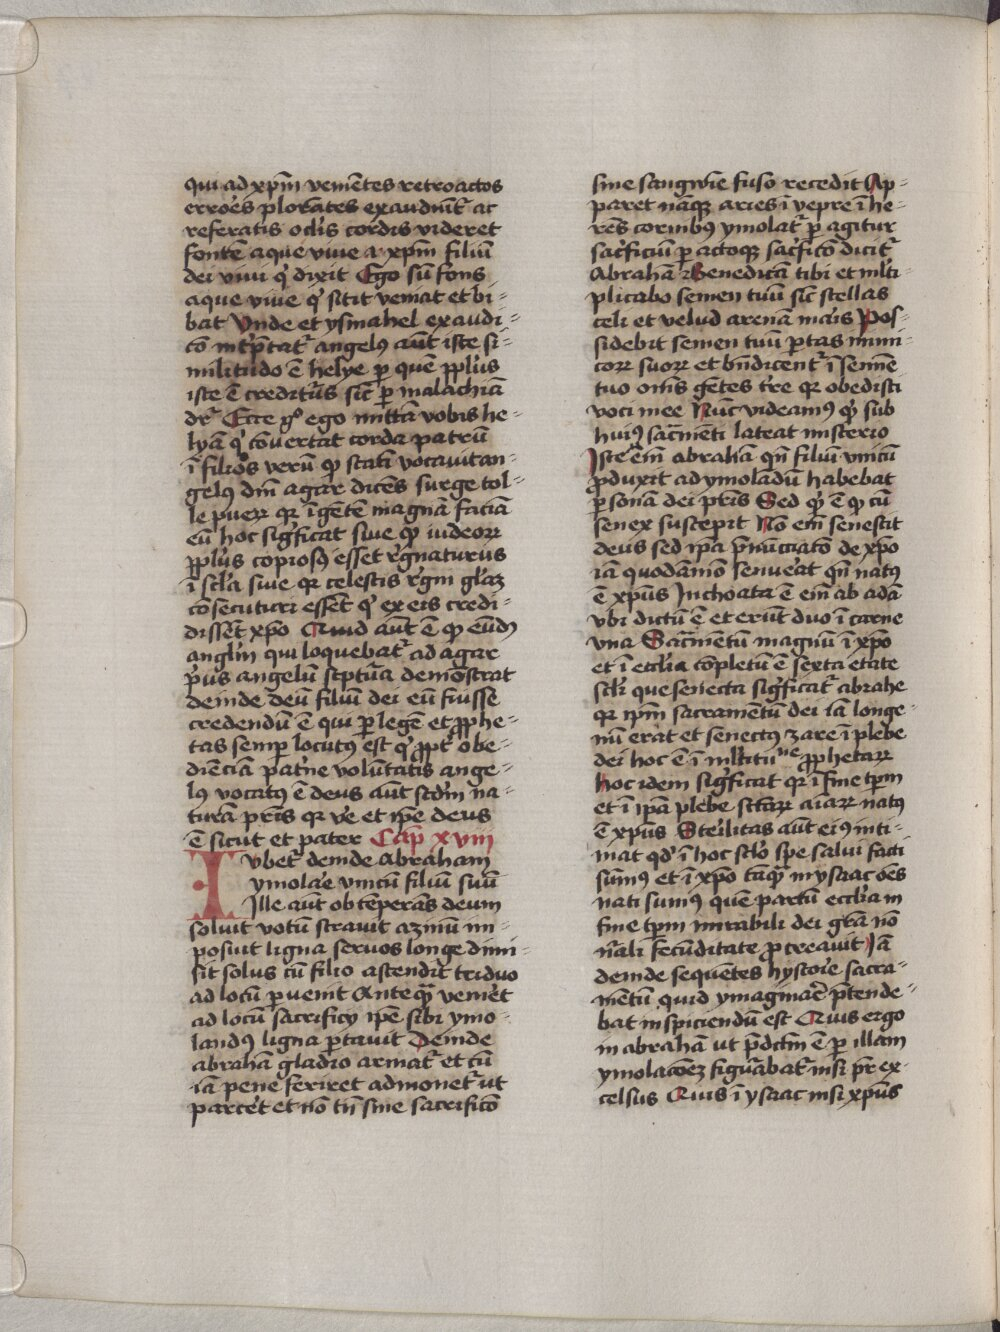 qui ad xp̄m venie̅tes retroactos
erro̅es plora̅tes exaudiu̅t᷑ ac
referatis oc̅lis cordis videret
fonte̅ aque vive a xp̄m filiu̅
dei vivi q̇ dixit Ego su̅ fons
aque vive q̇ sitit veniat et bi⸗
bat Vnde et ysmahel exaudi⸗
co̅ int̅p̅tat᷑ angelꝰ au̅t iste si⸗
militudo e̅ helye ꝑ que̅ pp̅lus
iste e̅ crediturꝰ sic̅ ꝑ malachia̅
dr᷑ Ecce gͦ ego mitta̅ vobis he⸗
lya̅ q̇ co̅vertat corda patru̅
i̅ filios veru̅ ꝙ stati̅ vocavit an⸗
gelꝰ dn̅i agar dice̅s surge tol⸗
le pueꝝ qꝛ i̅ ge̅te̅ magna̅ facia̅
eu̅ hoc sig̅ficat sive ꝙ iudeoꝝ
pp̅lus copiosꝰ esset regnaturus
i̅ sc̅la sive qꝛ celestis regni gl̅ia̅
co̅secuturi esse̅t q̇ ex eis credi⸗
disse̅t xp̅o Quid au̅t e̅ ꝙ eu̅dꝫ
angl̅m qui loquebat᷑ ad agar
priꝰ angelu̅ sc̅ptu̅a demo̅strat
deinde deu̅ filiu̅ dei eu̅ fuisse
credendu̅ e̅ qui ꝑ lege̅ et ꝓphe⸗
tas semꝑ locutꝰ est q̇ ꝓpt᷑ obe⸗
die̅cia̅ pat̅ne volu̅tatis ange⸗
lꝰ vocatꝰ e̅ deus aut̅ scd̅m na⸗
tura̅ pr̅is qꝛ v̅e et ip̅e deus
e̅ sicut et pater Cap̅ xviii
Iubet᷑ deinde Abraham
ymola̅e vnicu̅ filiu̅ suu̅
Ille au̅t obtempera̅s deum
solvit votu̅ stravit azinu̅ im⸗
posuit ligna servos longe dimi⸗
sit solus cu̅ filio ascendit᷑ triduo
ad locu̅ ꝑvenit Anteqᷓ venie̅t
ad locu̅ sacrificy ip̅e sibi ymo⸗
landꝰ ligna portavit Deinde
abraha̅ gladio armat᷑ et cu̅
ia̅ pene feriret admonet᷑ ut
parce̅t et no̅ tn̅ sine sacrifico̅
sine sangwie̅ fuso recedit Ap⸗
paret na̅qꝫ aries i̅ vepre i̅ he⸗
re̅s cornibꝰ ymolat᷑ ꝑ agitur
sac̅ficiu̅ ꝑactoqꝫ sac̅fico̅ dicit᷑
Abraha̅ Benedica̅ tibi et ml̅ti⸗
plicabo semen tuu̅ sic̅ stellas
celi et velud arena̅ ma̅is Pos⸗
sidebit semen tuu̅ portas inimi
coꝝ suoꝝ et bn̅dicent᷑ i̅ semi̅e
tuo om̅s ge̅tes t̅re qꝛ obedisti
voci mee Nu̅c videamꝰ ꝙ sub
huiꝰ sacr̅me̅ti lateat misterio
Iste em̅ abraha̅ qn̅ filiu̅ vnicu̅
ꝓduxit ad ymoladu̅ habebat
ꝑsona̅ dei pr̅is Sed ꝙ e̅ ꝙ cu̅
senex suscepit No̅ em̅ senescit
deus sed ip̅a pr̅nu̅ciato̅ de xp̅o
ia̅ quoda̅mo̅ senue̅at qn̅ natꝰ
e̅ xp̅us Inchoata e̅ em̅ ab ada̅
vbi dictu̅ e̅ et eru̅t duo i̅ carne
vna Sac̅mentu̅ magnu̅ i̅ xp̅o
et i̅ eccl̅ia co̅pletu̅ e̅ sexta etate
sc̅li que senecta sig̅ficat᷑ abrahe
qꝛ ip̅m sacramentu̅ dei ia̅ longe⸗
nu̅ erat et senectꝰ zare i̅ plebe
dei hoc e̅ i̅ ml̅titu ͩⁿᵉ ꝓphetaꝝ
hoc idem sig̅ficat qꝛ i̅ fine tp̅m
et i̅ ip̅a plebe sc̅taꝝ ai̅aꝝ natꝰ
e̅ xp̅us Ste̅ilitas au̅t eiꝰ inti⸗
mat qd̅ i̅ hoc sc̅lo spe salui facti
sumꝰ et i̅ xp̅o ta̅qᷓ in ysaac oe̅s
nati sumꝰ quem partu̅ eccl̅ia in
fine tp̅m mirabili dei gr̅a no̅
nr̅ali fecu̅ditate ꝓcreavit Ia̅
deinde seque̅tes hysto̅ie sacra⸗
me̅tu̅ quid ymaginar̅e p̅tende⸗
bat inspiciendu̅ est Quis ergo
in abraha̅ ut p̅dc̅m e̅ ꝑ illam
ymolaco̅eꝫ figu̅abat᷑ nisi pr̅ ex⸗
celsus Quis i̅ ysaac nisi xp̅us